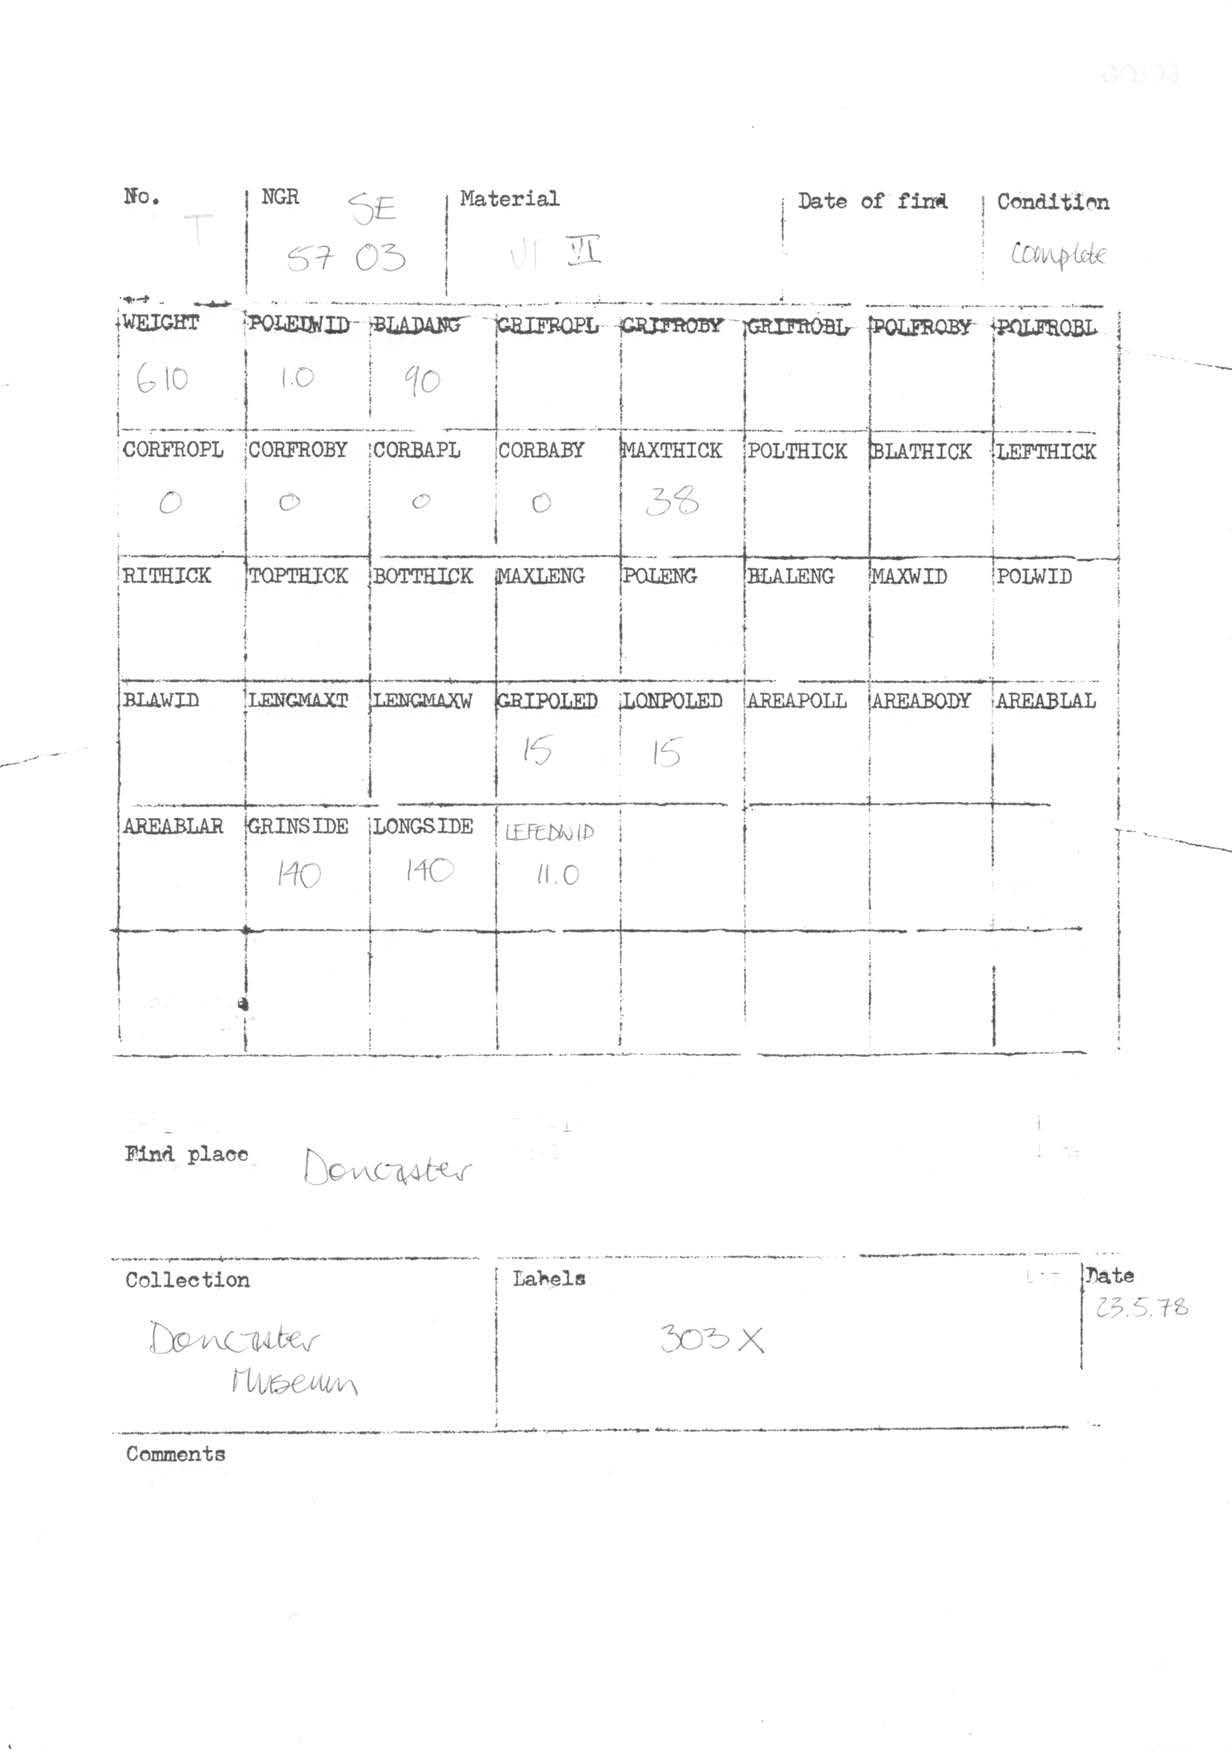 No. NGR SE Material Date of find Condition
T 57 03 VI VI complete
WEIGHT POLEDWID BLADANG GRIFROPL GRIFROBY GRIFROBL POLFROBY POLFROBL
610 1.0 90
CORFROPL CORFROBY CORBAPL CORBABY MAXTHICK POLTHICK BLATHICK LEFTHICK
0 0 0 0 38
RITHICK TOPTHICK BOTTHICK MAXLENG POLENG BLALENG MAXWID POLWID
BLAWID LENGMAXT LENGMAXW GRIPOLED LONPOLED AREAPOLL AREABODY AREABLAL
15 15
AREABLAR GRINSIDE LONGSIDE LEFEDWID
140 140 11.0
Find place Doncaster
Collection Labels Date
23.5.78
Doncaster 303X
Museum
Comments